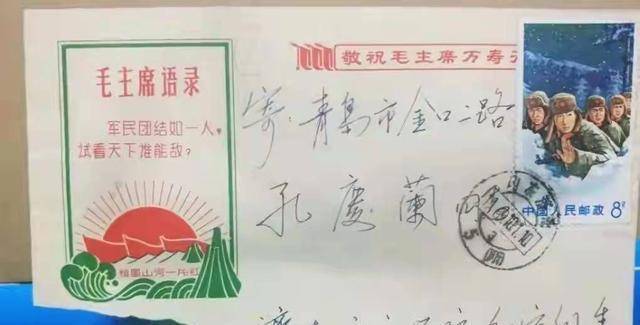 毛主席语录
军民团结如一人，
试看天下谁能敌？
祖国山河一片红
敬祝毛主席万寿无
寄·青島市金口二路
孔慶蘭
中国人民邮政 8分